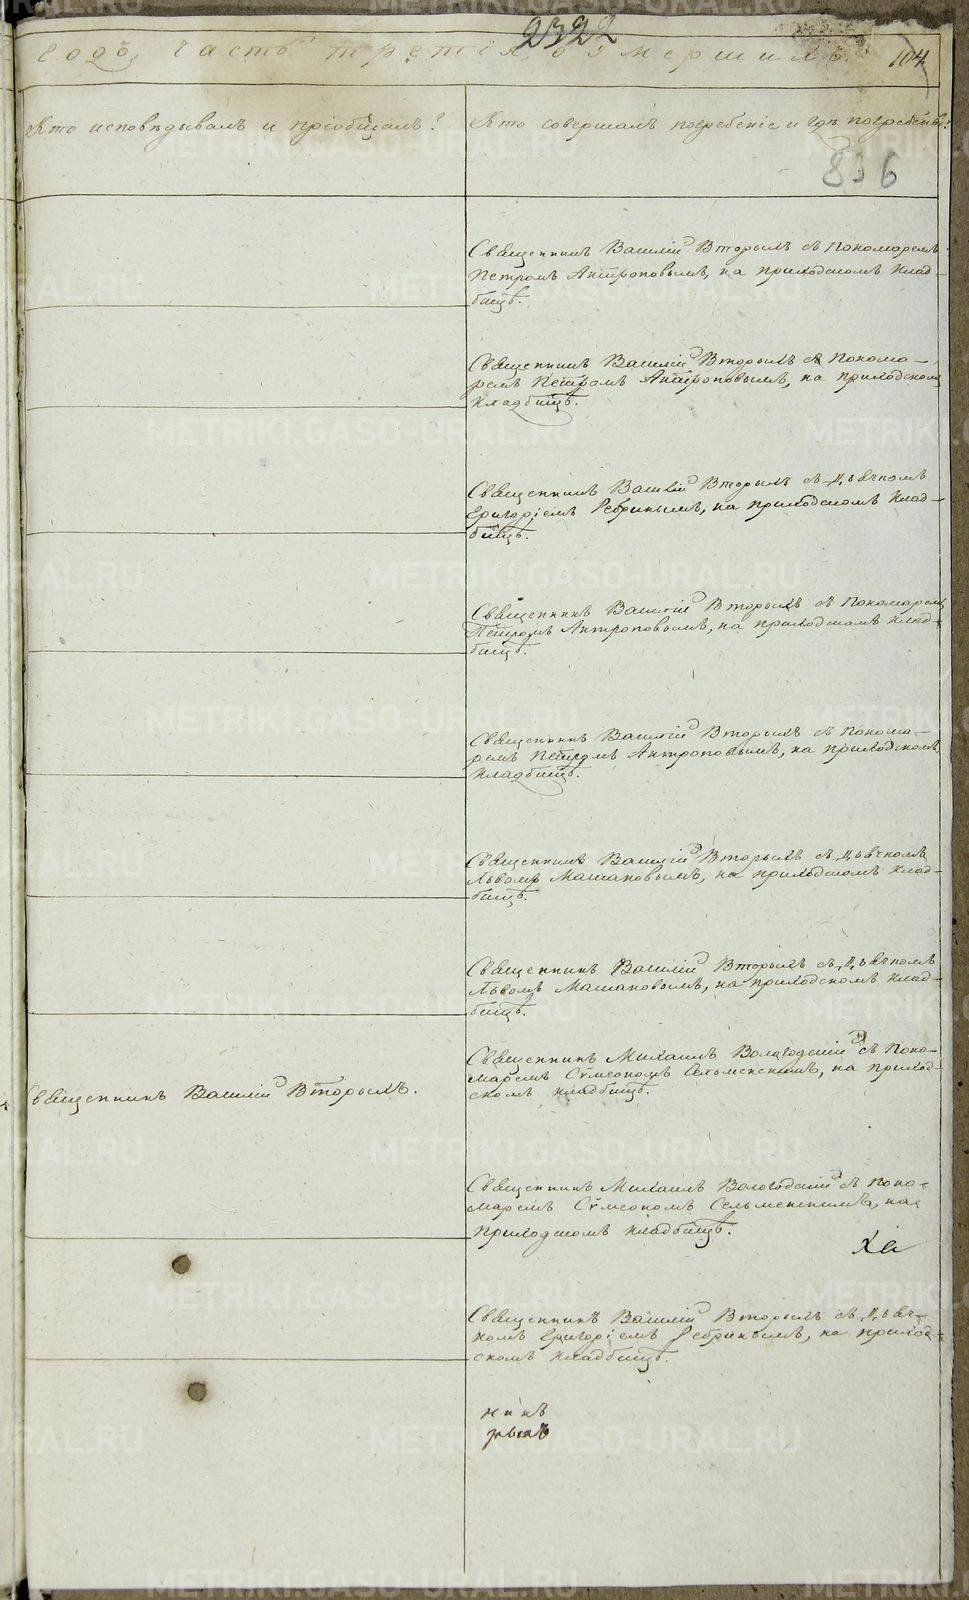 2322
годъ, часть третія, о умершихъ.
104
Кто исповѣдывалъ и пріобщалъ?
Кто совершалъ погребеніе и гдѣ погребены?
836
Священникъ Василій Вторыхъ съ Пономаремъ
Петромъ Антроповымъ, на приходскомъ клад-
бищѣ.
Священникъ Василій Вторыхъ съ Понома-
ремъ Петромъ Антроповымъ, на приходскомъ
кладбищѣ.
Священникъ Василій Вторыхъ съ Дьячкомъ
Григоріемъ Ребринымъ, на приходскомъ клад-
бищѣ.
Священникъ Василій Вторыхъ съ Пономаремъ
Петромъ Антроповымъ, на приходскомъ клад-
бищѣ.
Священникъ Василій Вторыхъ съ Понома-
ремъ Петромъ Антроповымъ, на приходскомъ
кладбищѣ.
Священникъ Василій Вторыхъ съ Дьячкомъ
Львомъ Машановымъ, на приходскомъ клад-
бищѣ.
Священникъ Василій Вторыхъ съ Дьячкомъ
Львомъ Машановымъ, на приходскомъ клад-
бищѣ.
Священникъ Василій Вторыхъ.
Священникъ Михаилъ Вологодскій съ Поно-
маремъ Сѵмеономъ Сельменскимъ, на приход-
скомъ кладбищѣ.
Священникъ Михаилъ Вологодскій съ Поно-
маремъ Сѵмеономъ Сельменскимъ, на
приходскомъ кладбищѣ.
Священникъ Василій Вторыхъ съ Дьяч-
комъ Григоріемъ Ребринымъ, на приход-
скомъ кладбищѣ.
никъ
рыхъ
METRIKI.GASO-URAL.RU